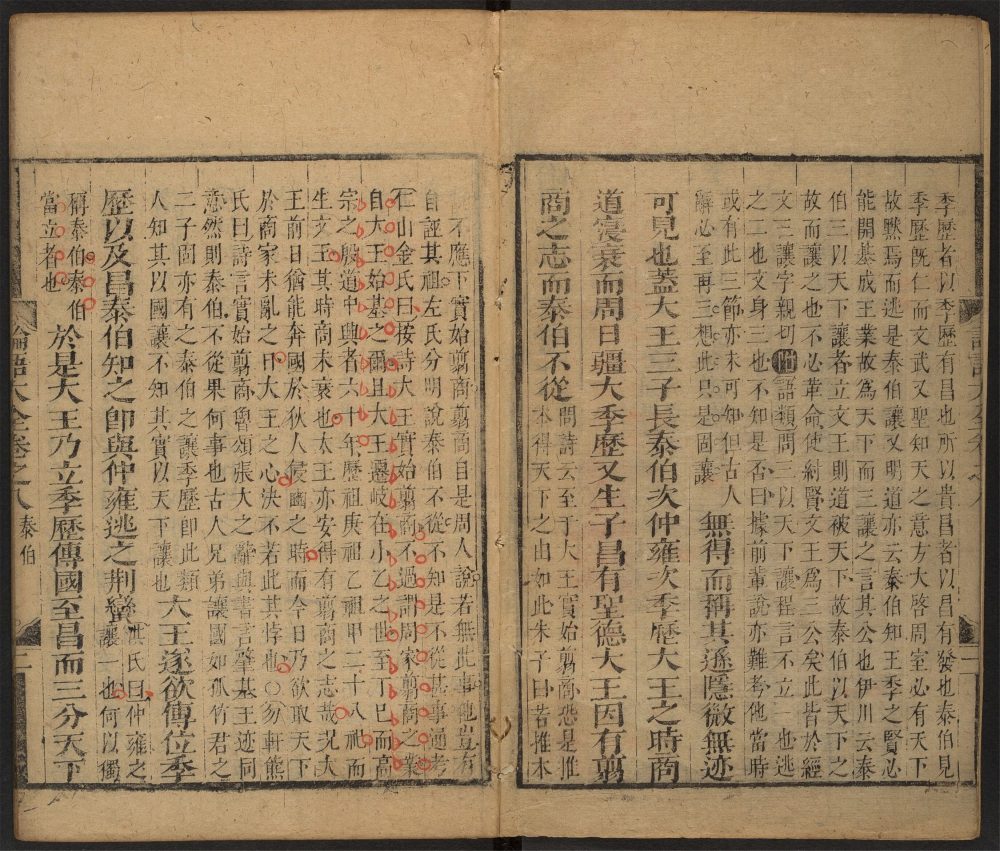 季歷者以季歷有昌也所以貴昌者以昌有發也泰伯見
季歷旣仁而文武又聖知天之意方大啓周室必有天下
故默焉而逃是泰伯讓又明道亦云泰伯知王季之賢必
能開基成王業故為天下而三讓之言其公也伊川云泰
伯三以天下讓者立文王則道被天下故泰伯以天下之
故而讓之也不必革命使紂賢文王為三公矣此皆於經
文三讓字親切 語類問三以天下讓程言不立一也逃
之二也文身三也不知是否曰據前輩說亦難考他當時
或有此三節亦未可知但古人
辭必至再三想此只是固讓
無得而稱其遜隱微無迹
可見也蓋大王三子長泰伯次仲雍次季歷大王之時商
道寖衰而周日疆大季歷又生子昌有聖德大王因有翦
商之志而泰伯不從
問詩云至于大王實始翦商恐是推
本得天下之由如此朱子曰若推本
不應下實始翦商翦商自是周人說若無此事他豈有
自誣其祖左氏分明說泰伯不從不知是不從甚事過考
仁山金氏曰按詩大王實始翦商不過謂周家翦商之業
自大王始基之爾且大王遷岐在小乙之世至丁巳而高
宗之殷道中興者六十年歷祖庚祖乙祖甲二十八祀而
生文王其時商未衰也太王亦安得有翦商之志哉況大
王前日猶能奔國於狄人侵豳之時而今日乃欲取天下
於商家未亂之日大王之心決不若此其悖也○勿軒熊
氏曰詩言實始翦商魯頌張大之辭與書言肇基王迹同
意然則泰伯不從果何事也古人兄弟讓國如孤竹君之
二子固亦有之泰伯之讓季歷卽此類
人知其以國讓不知其實以天下讓也
大王遂欲傳位季
歷以及昌泰伯知之卽與仲雍逃之荆蠻
洪氏曰仲雍之
讓一也何以獨
稱泰伯泰伯
當立者也
於是大王乃立季歷傳國至昌而三分天下
論語大全卷之八 泰伯 二